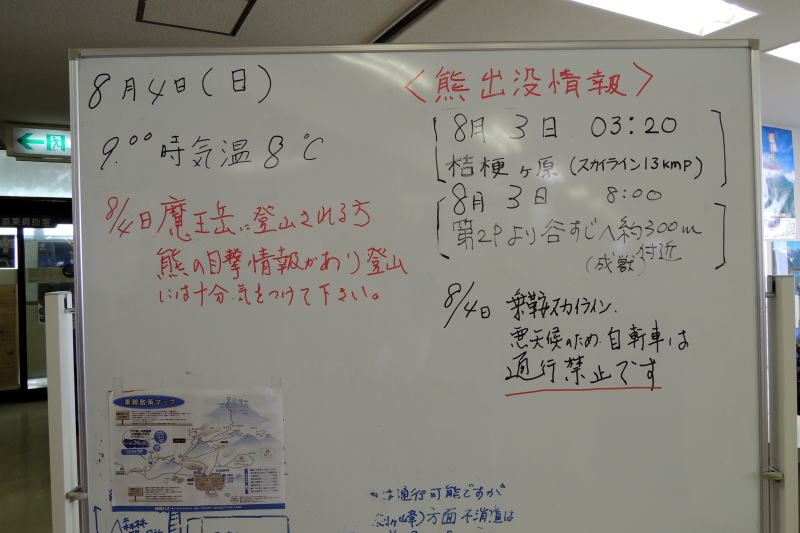 8月4日(日)
9.00時気温8℃
8/4日魔王岳に登山される方
熊の目撃情報があり登山
には十分気をつけて下さい。
<熊出没情報>
8月3日 03:20
桔梗ヶ原(スカイライン13kmP)
8月3日 8:00
第2Pより谷すじへ約300m
(成獣)付近
8/4日 乗鞍スカイライン.
悪天候のため自転車は
通行禁止です
乗鞍散策マップ
は通行可能ですが
方面不消道は
森林